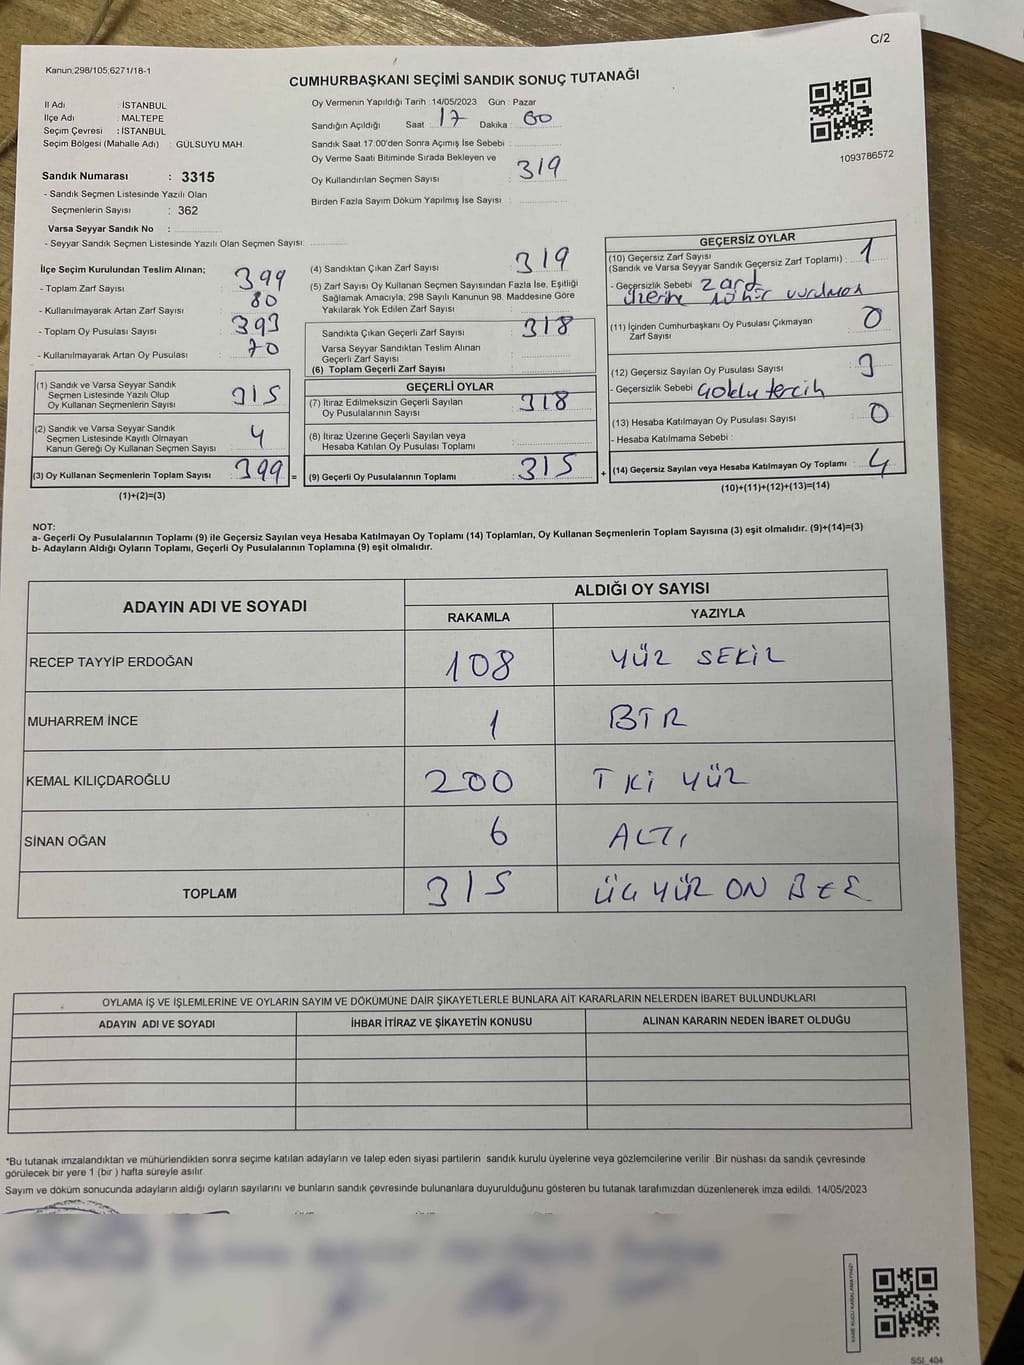 C/2
Kanun;298/105;6271/18-1
CUMHURBAŞKANI SEÇİMİ SANDIK SONUÇ TUTANAĞI
İl Adı : İSTANBUL
İlçe Adı : MALTEPE
Seçim Çevresi : İSTANBUL
Seçim Bölgesi (Mahalle Adı) : GÜLSUYU MAH.
Sandık Numarası : 3315
- Sandık Seçmen Listesinde Yazılı Olan
Seçmenlerin Sayısı : 362
Varsa Seyyar Sandık No :
- Seyyar Sandık Seçmen Listesinde Yazılı Olan Seçmen Sayısı:
Oy Vermenin Yapıldığı Tarih :14/05/2023 Gün : Pazar
Sandığın Açıldığı Saat : 17 Dakika : 00
Sandık Saat 17:00'den Sonra Açımış İse Sebebi :
Oy Verme Saati Bitiminde Sırada Bekleyen ve
Oy Kullandırılan Seçmen Sayısı : 319
Birden Fazla Sayım Döküm Yapılmış İse Sayısı :
1093786572
İlçe Seçim Kurulundan Teslim Alınan;
- Toplam Zarf Sayısı : 399
- Kullanılmayarak Artan Zarf Sayısı : 80
- Toplam Oy Pusulası Sayısı : 393
- Kullanılmayarak Artan Oy Pusulası : 70
(1) Sandık ve Varsa Seyyar Sandık
Seçmen Listesinde Yazılı Olup
Oy Kullanan Seçmenlerin Sayısı : 315
(2) Sandık ve Varsa Seyyar Sandık
Seçmen Listesinde Kayıtlı Olmayan
Kanun Gereği Oy Kullanan Seçmen Sayısı : 4
(3) Oy Kullanan Seçmenlerin Toplam Sayısı : 399 =
(1)+(2)=(3)
(4) Sandıktan Çıkan Zarf Sayısı : 319
(5) Zarf Sayısı Oy Kullanan Seçmen Sayısından Fazla İse, Eşitliği
Sağlamak Amacıyla, 298 Sayılı Kanunun 98. Maddesine Göre
Yakılarak Yok Edilen Zarf Sayısı :
Sandıkta Çıkan Geçerli Zarf Sayısı : 318
Varsa Seyyar Sandıktan Teslim Alınan
Geçerli Zarf Sayısı :
(6) Toplam Geçerli Zarf Sayısı :
GEÇERLİ OYLAR
(7) İtiraz Edilmeksizin Geçerli Sayılan
Oy Pusulalarının Sayısı : 318
(8) İtiraz Üzerine Geçerli Sayılan veya
Hesaba Katılan Oy Pusulası Toplamı :
(9) Geçerli Oy Pusulalarının Toplamı : 315 +
GEÇERSİZ OYLAR
(10) Geçersiz Zarf Sayısı
(Sandık ve Varsa Seyyar Sandık Geçersiz Zarf Toplamı) : 1
- Geçersizlik Sebebi : zarf
üzerine mühür vurulması
(11) İçinden Cumhurbaşkanı Oy Pusulası Çıkmayan
Zarf Sayısı : 0
(12) Geçersiz Sayılan Oy Pusulası Sayısı : 3
- Geçersizlik Sebebi : çoklu tercih
(13) Hesaba Katılmayan Oy Pusulası Sayısı : 0
- Hesaba Katılmama Sebebi :
(14) Geçersiz Sayılan veya Hesaba Katılmayan Oy Toplamı : 4
(10)+(11)+(12)+(13)=(14)
NOT:
a- Geçerli Oy Pusulalarının Toplamı (9) ile Geçersiz Sayılan veya Hesaba Katılmayan Oy Toplamı (14) Toplamları, Oy Kullanan Seçmenlerin Toplam Sayısına (3) eşit olmalıdır. (9)+(14)=(3)
b- Adayların Aldığı Oyların Toplamı, Geçerli Oy Pusulalarının Toplamına (9) eşit olmalıdır.
ADAYIN ADI VE SOYADI ALDIĞI OY SAYISI
RAKAMLA YAZIYLA
RECEP TAYYİP ERDOĞAN 108 YÜZ SEKİZ
MUHARREM İNCE 1 BİR
KEMAL KILIÇDAROĞLU 200 İKİ YÜZ
SİNAN OĞAN 6 ALTI
TOPLAM 315 ÜÇ YÜZ ON BEŞ
OYLAMA İŞ VE İŞLEMLERİNE VE OYLARIN SAYIM VE DÖKÜMÜNE DAİR ŞİKAYETLERLE BUNLARA AİT KARARLARIN NELERDEN İBARET BULUNDUKLARI
ADAYIN ADI VE SOYADI İHBAR İTİRAZ VE ŞİKAYETİN KONUSU ALINAN KARARIN NEDEN İBARET OLDUĞU
*Bu tutanak imzalandıktan ve mühürlendikten sonra seçime katılan adayların ve talep eden siyasi partilerin sandık kurulu üyelerine veya gözlemcilerine verilir. Bir nüshası da sandık çevresinde
görülecek bir yere 1 (bir ) hafta süreyle asılır.
Sayım ve döküm sonucunda adayların aldığı oyların sayılarını ve bunların sandık çevresinde bulunanlara duyurulduğunu gösteren bu tutanak tarafımızdan düzenlenerek imza edildi. 14/05/2023
SSİ_404